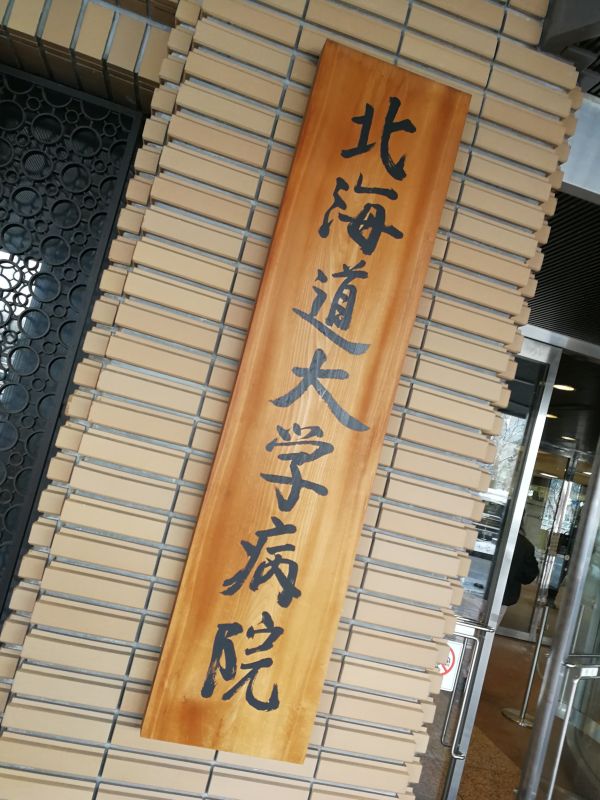 北海道大学病院